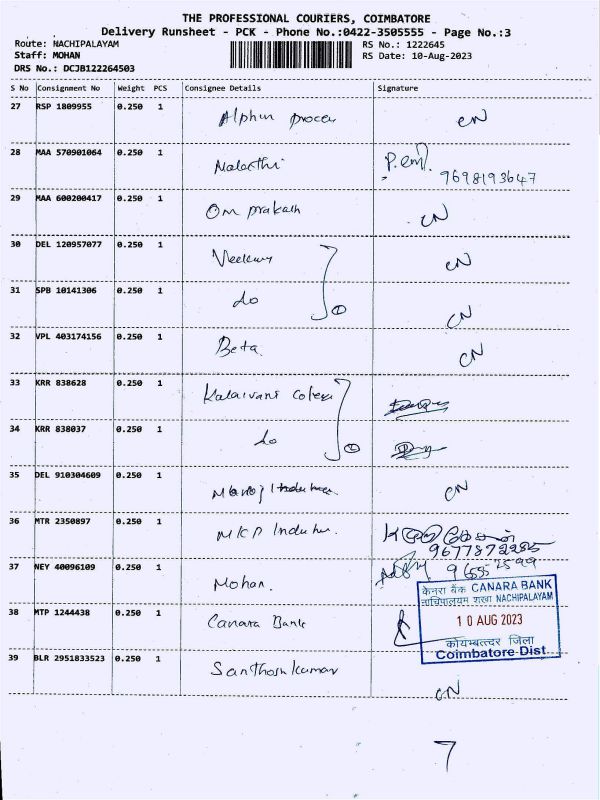 THE PROFESSIONAL COURIERS, COIMBATORE
Delivery Runsheet - PCK - Phone No.:0422-3505555 - Page No.:3
Route: NACHIPALAYAM RS No.: 1222645
Staff: MOHAN RS Date: 10-Aug-2023
DRS No.: DCJB122264503
S No Consignment No Weight PCS Consignee Details Signature
27 RSP 1809955 0.250 1 CN
28 MAA 570901064 0.250 1 Malarthi
9698193647
29 MAA 600200417 0.250 1 Om prakash CN
30 DEL 120957077 0.250 1 CN
31 SPB 10141306 0.250 1 do CN
32 VPL 403174156 0.250 1 Beta. CN
33 KRR 838628 0.250 1 Kalaivani
34 KRR 838037 0.250 1 do
35 DEL 910304609 0.250 1 Manoj CN
36 MTR 2350897 0.250 1 MKP
9677872285
37 NEY 40096109 0.250 1 Mohan.
केनरा बैंक CANARA BANK
नाचिपालयम शाखा NACHIPALAYAM
38 MTP 1244438 0.250 1 Canara Bank 10 AUG 2023
कोयम्बत्तूर जिला
Coimbatore Dist
39 BLR 2951833523 0.250 1 Santhoshkumar CN
7